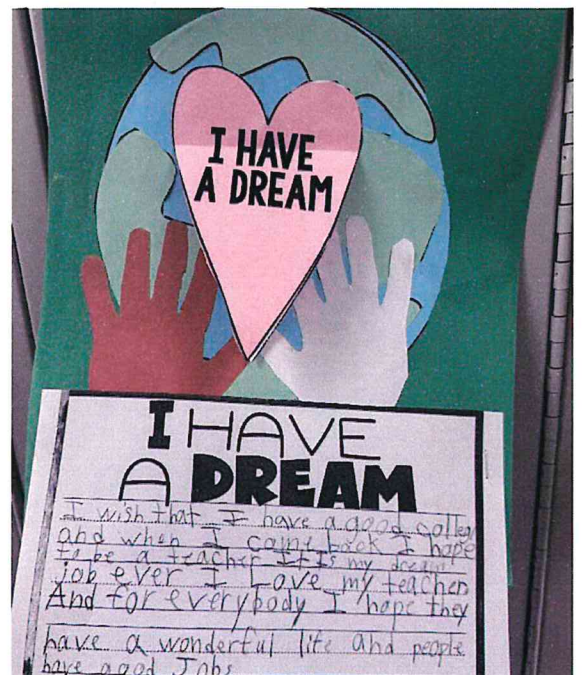 I HAVE
A DREAM
I HAVE
A DREAM
I wish that I have a good colleg
and when I came back I hope
to be a teacher It Is my dream
job ever I Love my teacher
And for everybody I hope they
have a wonderful life and people
have a good Jobs